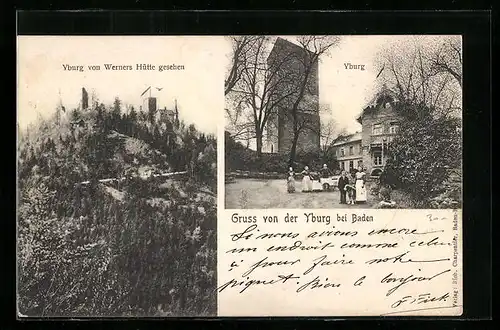 Yburg von Werners Hütte gesehen
Yburg
Gruss von der Yburg bei Baden
Si nous avions encore
un endroit comme celui
à pour faire notre
piquet! Bien le bonjour
F. Fick
Verlag: Rich. Charpentier, Baden-